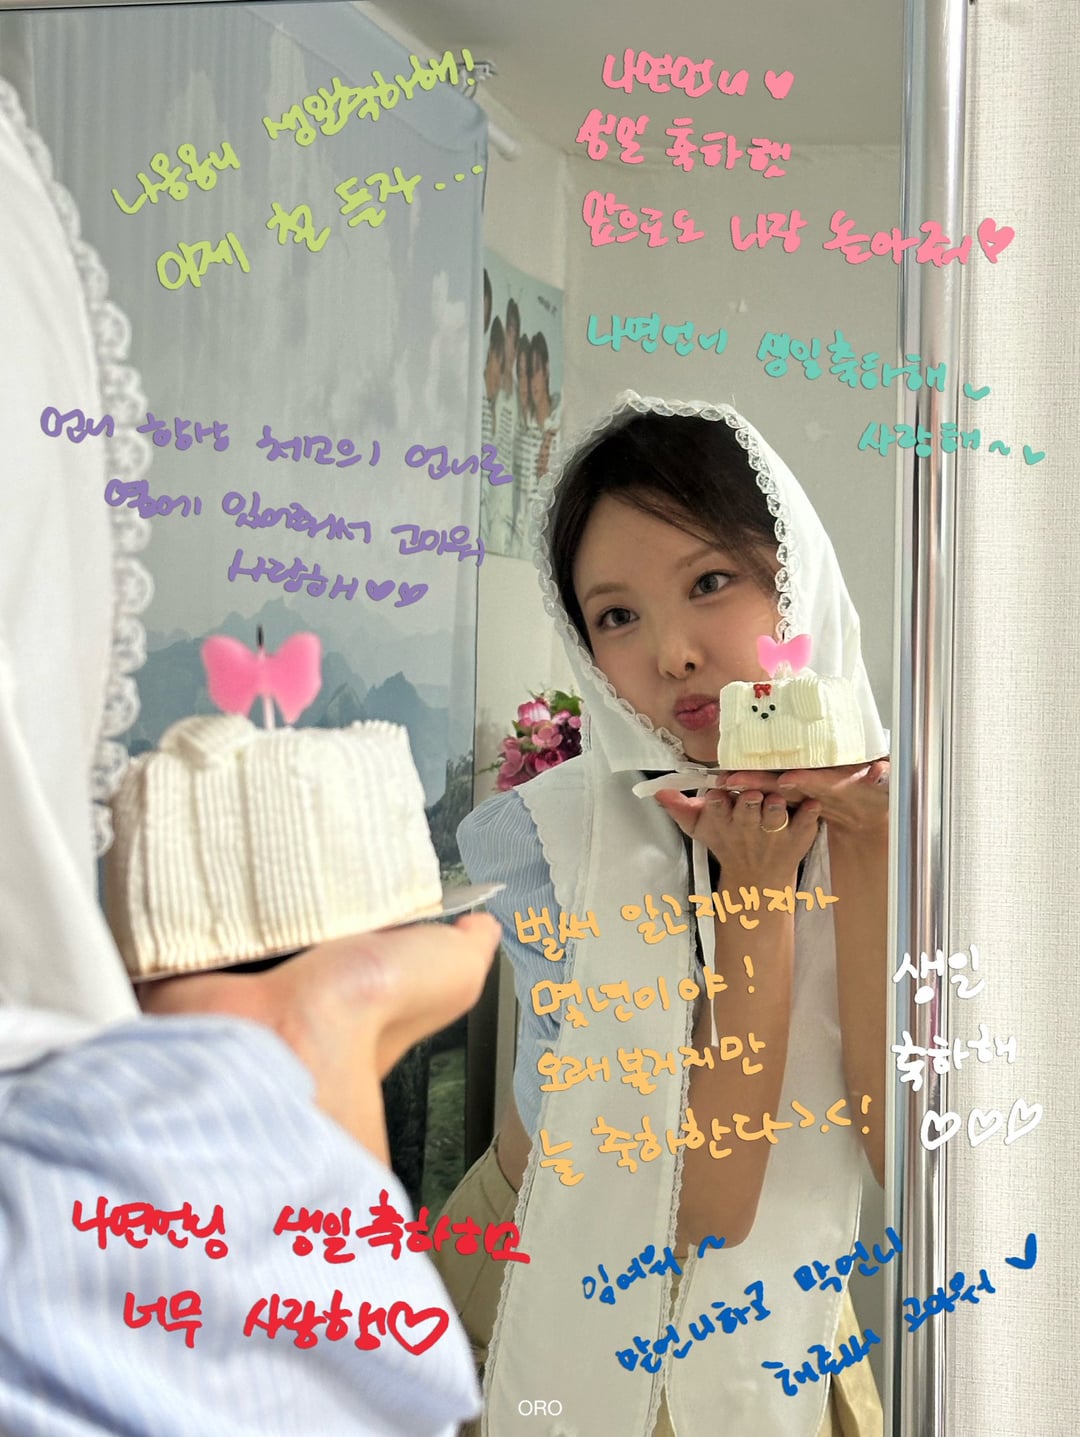 나옹옹니 생일축하해!
이제 철 들자...
나연언니♡
생일 축하햇
앞으로도 나랑 놀아줘♡
나연언니 생일축하해
사랑해~
언니 항상 최고의 언니로
옆에 있어줘서 고마워
사랑해♡♡
벌써 알고지낸지가
몇년이야!
오래볼거지만
늘 축하한다>.<!
생일
축하해
♡♡♡
나연언닝 생일축하하고
너무 사랑행♡
맏언니하고 막언니
해줘서 고마워
ORO